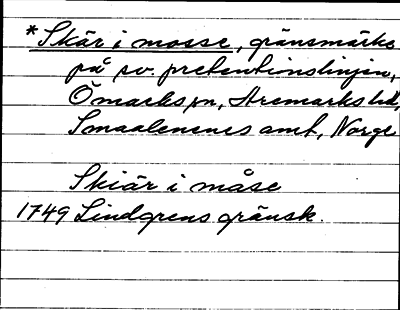 *Skär i mosse, gränsmärke
på sv. pretentionslinjen,
Ömarks sn, Aremarks hd,
Smaalenenes amt, Norge
Skiär i måse
1749 Lindgrens gränsk.